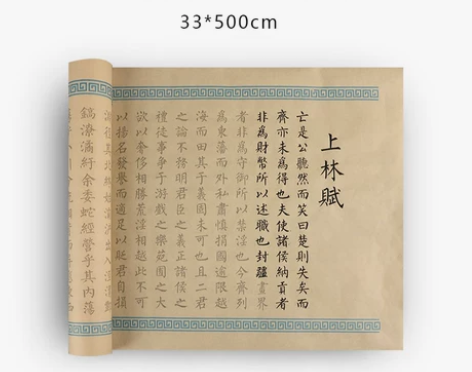 33*500cm
上林賦
亡是公聽然而笑曰楚則失矣而
齊亦未爲得也夫使諸侯納貢者
非爲財幣所以述職也封疆畫界
者非爲守御所以禁淫也今齊列
爲東藩而外私肅慎捐國逾限越
海而田其于義固未可也且二君
之論不務明君臣之義正諸侯之
禮徒事爭于游戲之樂苑囿之大
欲以奢侈相勝荒淫相越此不可
以揚名發譽而適足以貶君自損
鎬潦潏紆余委蛇經營乎其內蕩